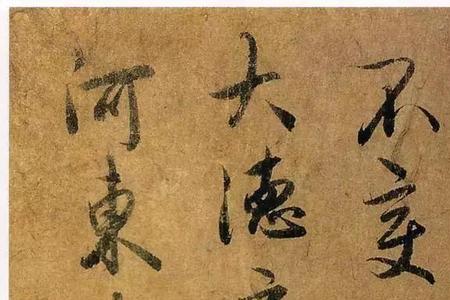 不
大德
河東